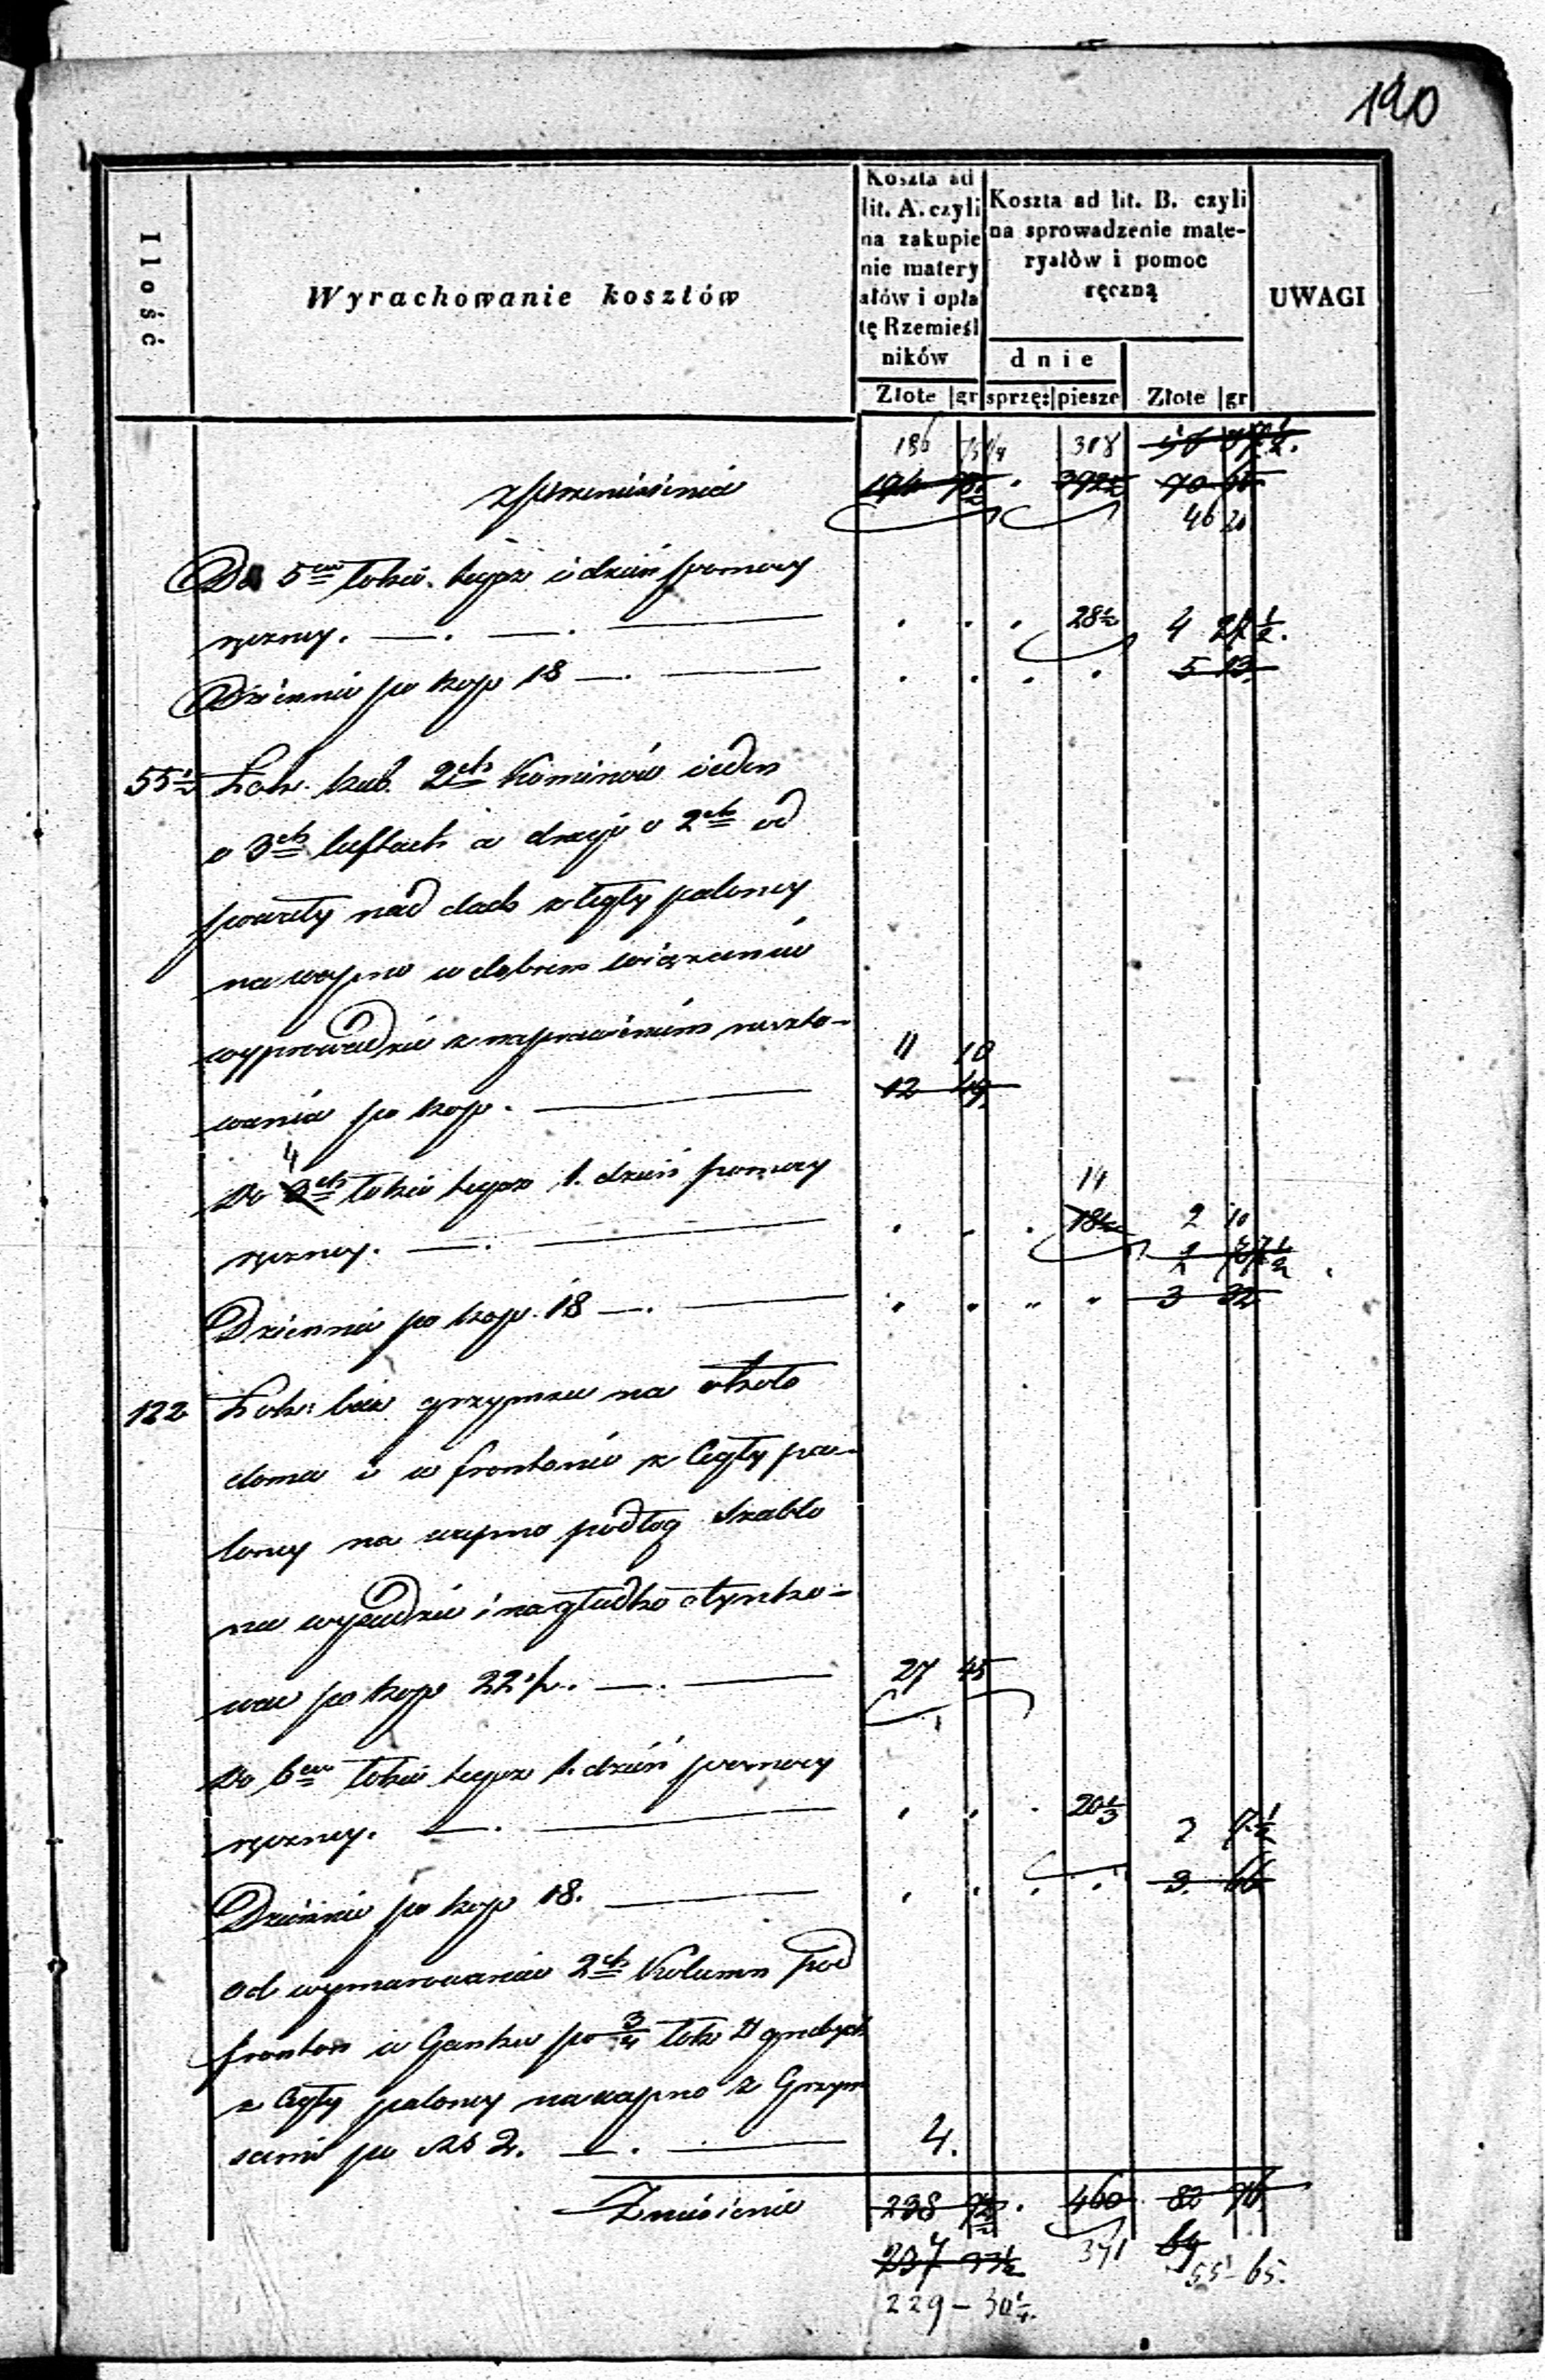 190
Ilość
Wyrachowanie kosztów
Koszta ad lit. A. czyli na zakupie nie matery ałów i opła tę Rzemieśl ników
Koszta ad lit. B. czyli na sprowadzenie mate- ryałów i pomoc ręczną
UWAGI
dnie
Złote gr sprzę: piesze Złote gr
186 318
z przeniesienia 70
46 20
Do 5ciu łokci tegoż i dzień pomocy
ręczney. 28½ 4
Dziennie po kop 18 5 13
55½ Łok. kub. 2ch Kominów ieden
o 3ch luftach a drugi o 2ch od
powały nad dach z Cegły paloney
na wapno w dobrem wiązaniu
wyprowadzić z naprawieniem ruszto- 11 10
wania po kop. 12 49
4
Do 3ch łokci tegoż 1. dzień pomocy 14
ręczney. 18½ 2 10
Dziennie po kop. 18 3 32
122 Łok: bie gzymsu na około
domu i w frontonie z Cegły pa-
loney na wapno podług szablo
nu wysadzić i nagładko otynko-
wać po kop 22½. 27 45
Do 6ciu łokci tegoż 1. dzień pomocy
ręczney. 20⅓ 2
Dziennie po kop 18. 3. 66
od wymurowania 2ch Kolumn pod
fronton w Ganku po ¾ łok grubych
z Cegły paloney na wapno z Gzym
sami po Rs 2. 4.
Zniesienie 238 460 82 76
237 371 64
229 - 30¼. 55 - 65.